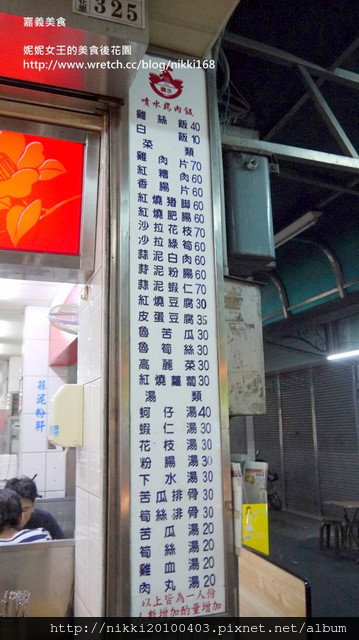 嘉義美食
妮妮女王的美食後花園
http://www.wretch.cc/blog/nikki168
325
噴水
噴水鷄肉飯
雞絲飯40
白飯10
菜類
雞肉片70
紅糟肉60
香腸片60
紅燒豬腳60
紅燒肥腸60
沙拉花枝70
沙拉綠筍60
蒜泥白肉60
蒜泥粉腸60
蒜泥蝦仁70
紅燒豆腐30
皮蛋豆腐35
魯苦瓜30
魯筍絲30
高麗菜30
紅燒蘿蔔30
湯類
蚵仔湯40
蝦仁湯30
花枝湯30
粉腸湯30
下水湯30
苦瓜排骨30
筍絲排骨30
苦瓜湯20
筍絲湯20
雞血湯20
肉丸湯20
以上皆為一人份
人數增加的量增加
蒜泥粉肝
http://nikki20100403.pixnet.net/album